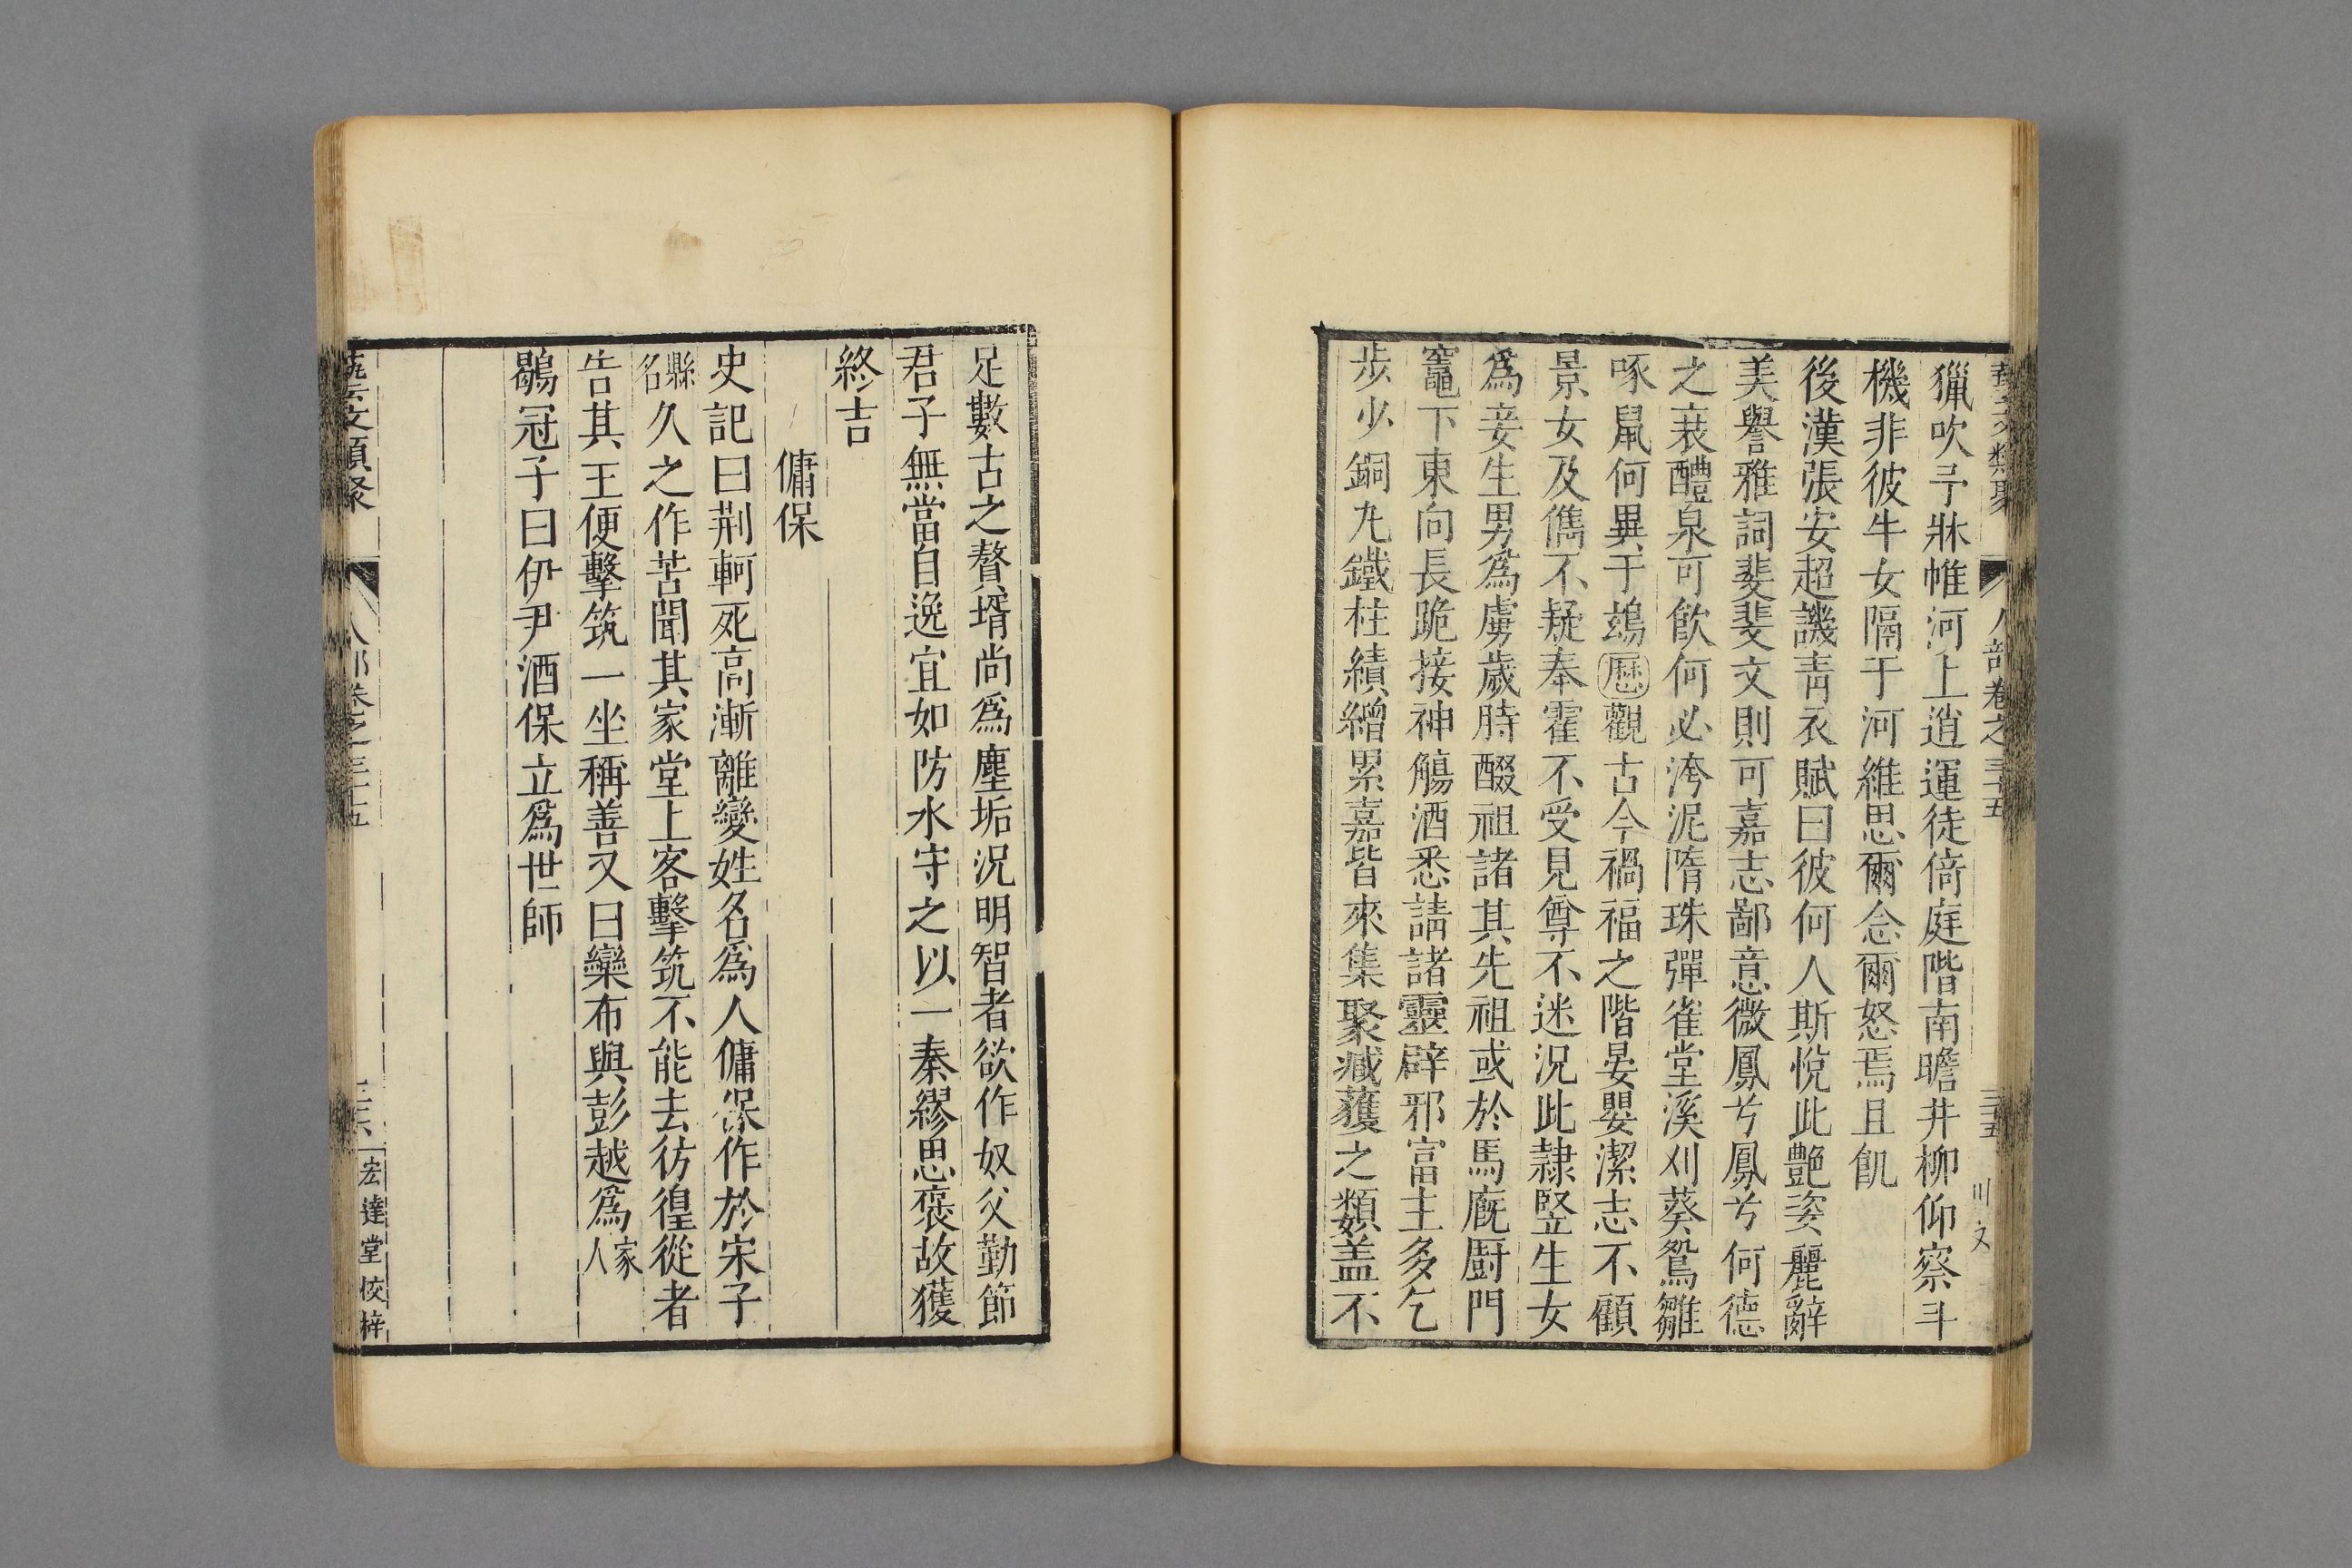 藝文類聚 人部卷之三十五 三十五 川文
獵吹予牀帷河上逍遥徒倚庭階南瞻井柳仰察斗
機非彼牛女隔于河維思爾念爾怒焉且飢
後漢張安超譏靑衣賦曰彼何人斯悅此艶姿麗辭
美譽雅詞斐斐文則可嘉志鄙意微鳳兮鳳兮何德
之衰醴泉可飮何必洿泥隋珠彈雀堂溪刈葵鴛雛
啄鼠何異于鴟歷觀古今禍福之階晏嬰潔志不顧
景女及儁不疑奉霍不受見尊不迷況此隷竪生女
爲妾生男爲虜歲時醊祖諸其先祖或於馬廐厨門
竈下東向長跪接神觴酒悉請諸靈辟邪富主多乞
步少銅丸鐵柱績繒累嘉皆來集聚臧蒦之類盖不
足數古之贅壻尚爲塵垢況明智者欲作奴父勤節
君子無當自逸宜如防水守之以一秦繆思褒故獲
終吉
傭保
史記曰荆軻死高漸離變姓名爲人傭保作於宋子
縣名久之作苦聞其家堂上客擊筑不能去彷徨從者
告其王便擊筑一坐稱善又曰欒布與彭越爲家人
鶡冠子曰伊尹酒保立爲世師
藝文類聚 人部卷之三十五 三六 宏達堂校梓